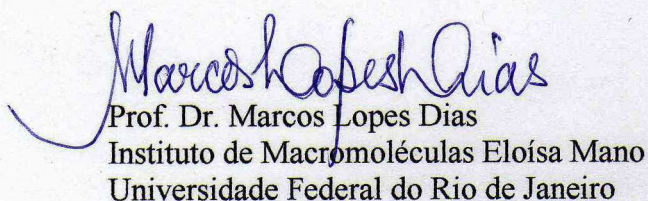 Marcos Lopes Dias
Prof. Dr. Marcos Lopes Dias
Instituto de Macromoléculas Eloísa Mano
Universidade Federal do Rio de Janeiro